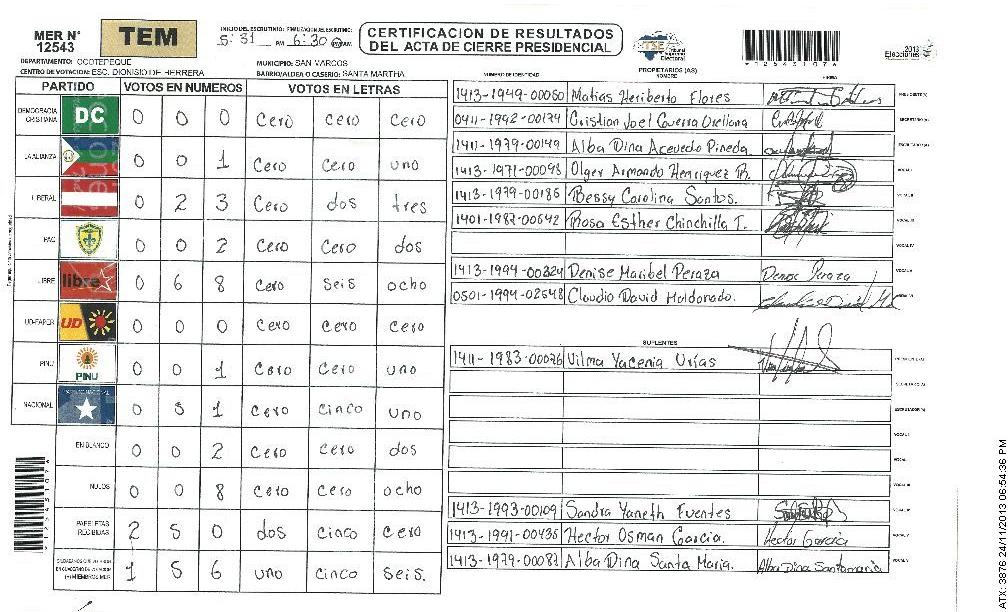 MER N° 12543
TEM
INICIO DEL ESCRUTINIO: FINALIZACION DEL ESCRUTINIO:
5:31 PM 6:30
CERTIFICACION DE RESULTADOS
DEL ACTA DE CIERRE PRESIDENCIAL
TSE Tribunal Supremo Electoral
Elecciones 2013
DEPARTAMENTO: OCOTEPEQUE
MUNICIPIO: SAN MARCOS
CENTRO DE VOTACION: ESC. DIONISIO DE HERRERA
BARRIO/ALDEA O CASERIO: SANTA MARTHA
NÚMERO DE IDENTIDAD
PROPIETARIOS (AS)
NOMBRE
FIRMA
PARTIDO VOTOS EN NUMEROS VOTOS EN LETRAS
DEMOCRACIA CRISTIANA DC 0 0 0 Cero cero cero
LA ALIANZA 0 0 1 Cero Cero uno
LIBERAL 0 2 3 Cero dos tres
PAC 0 0 2 Cero Cero dos
LIBRE libre 0 6 8 Cero Seis ocho
UD-FAPER UD 0 0 0 Cero Cero cero
PINU PINU 0 0 1 Cero Cero uno
NACIONAL 0 5 1 Cero cinco uno
EN BLANCO 0 0 2 Cero Cero dos
NULOS 0 0 8 Cero Cero ocho
PAPELETAS RECIBIDAS 2 5 0 dos cinco cero
1 5 6 uno cinco seis.
1413-1949-00050 Matias Heriberto Flores
0411-1992-00174 Cristian Joel Guerra Orellana
1411-1979-00149 Alba Dina Acevedo Pineda
1413-1971-00098 Olger Armando Henriquez R.
1413-1979-00186 Bessy Carolina Santos.
1401-1987-00642 Rosa Esther Chinchilla T.
1413-1994-00324 Denise Maribel Peraza Denise Peraza
0501-1994-02648 Claudio David Maldonado.
SUPLENTES
1411-1983-00076 Vilma Yacenia Urías
1413-1993-00109 Sandra Yaneth Fuentes
1413-1991-00436 Hector Osman Garcia. Hector Garcia
1413-1979-00087 Alba Dina Santa Maria. Alba Dina Santamaria
ATX: 3976 24/11/2013 06:54:36 PM